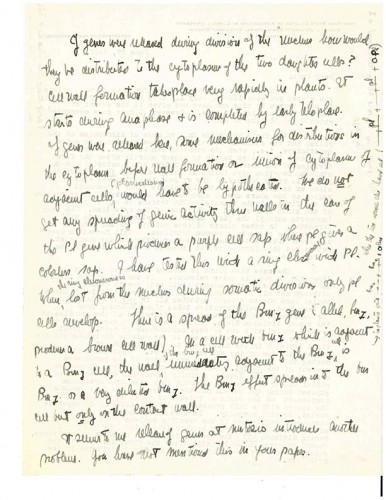 If genes were released during division of the nucleus how would
they be distributed to the cytoplasm of the two daughter cells?
Cell wall formation takes place very rapidly in plants. It
starts during anaphase & is completed by early telophase.
If genes were released here, some mechanism for distributions in
the cytoplasm before wall formation or union of cytoplasm of
adjacent cells, would have to be hypothecated. We do not
get any spreading of genic activity thru walls in the case of
the Pl gene which produces a purple cell sap when pl gives a
colorless sap. I have tested this with a ring chrom. with Pl.
When lost from the nucleus during somatic divisions only pl
cells develop. There is a spread of the Bm1 gene (allele, bm1,
produces a brown cell wall). In a cell with bm1 which is adjacent
to a Bm1 cell, the wall immediately adjacent to the Bm1 is
Bm1 or a very diluted bm1. The Bm1 effect spreads into the bm
cell but only on the contact wall.
It seems to me release of genes at mitosis introduces another
problem. You have not mentioned this in your paper.